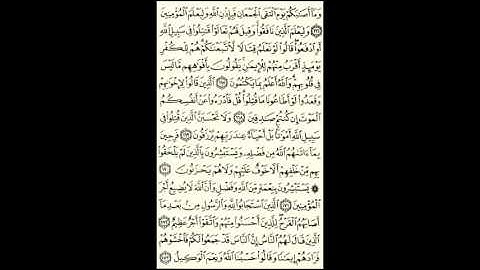 وَمَآ أَصَٰبَكُمْ يَوْمَ ٱلْتَقَى ٱلْجَمْعَانِ فَبِإِذْنِ ٱللَّهِ وَلِيَعْلَمَ ٱلْمُؤْمِنِينَ
١٦٦ وَلِيَعْلَمَ ٱلَّذِينَ نَافَقُوا۟ وَقِيلَ لَهُمْ تَعَالَوْا۟ قَٰتِلُوا۟ فِى سَبِيلِ ٱللَّهِ
أَوِ ٱدْفَعُوا۟ قَالُوا۟ لَوْ نَعْلَمُ قِتَالًا لَّٱتَّبَعْنَٰكُمْ هُمْ لِلْكُفْرِ
يَوْمَئِذٍ أَقْرَبُ مِنْهُمْ لِلْإِيمَٰنِ يَقُولُونَ بِأَفْوَٰهِهِم مَّا لَيْسَ
فِى قُلُوبِهِمْ وَٱللَّهُ أَعْلَمُ بِمَا يَكْتُمُونَ ١٦٧ ٱلَّذِينَ قَالُوا۟ لِإِخْوَٰنِهِمْ
وَقَعَدُوا۟ لَوْ أَطَاعُونَا مَا قُتِلُوا۟ قُلْ فَٱدْرَءُوا۟ عَنْ أَنفُسِكُمُ
ٱلْمَوْتَ إِن كُنتُمْ صَٰدِقِينَ ١٦٨ وَلَا تَحْسَبَنَّ ٱلَّذِينَ قُتِلُوا۟ فِى
سَبِيلِ ٱللَّهِ أَمْوَٰتًۢا بَلْ أَحْيَآءٌ عِندَ رَبِّهِمْ يُرْزَقُونَ ١٦٩ فَرِحِينَ
بِمَآ ءَاتَىٰهُمُ ٱللَّهُ مِن فَضْلِهِۦ وَيَسْتَبْشِرُونَ بِٱلَّذِينَ لَمْ يَلْحَقُوا۟
بِهِم مِّنْ خَلْفِهِمْ أَلَّا خَوْفٌ عَلَيْهِمْ وَلَا هُمْ يَحْزَنُونَ ١٧٠
۞ يَسْتَبْشِرُونَ بِنِعْمَةٍ مِّنَ ٱللَّهِ وَفَضْلٍ وَأَنَّ ٱللَّهَ لَا يُضِيعُ أَجْرَ
ٱلْمُؤْمِنِينَ ١٧١ ٱلَّذِينَ ٱسْتَجَابُوا۟ لِلَّهِ وَٱلرَّسُولِ مِنۢ بَعْدِ مَآ
أَصَابَهُمُ ٱلْقَرْحُ لِلَّذِينَ أَحْسَنُوا۟ مِنْهُمْ وَٱتَّقَوْا۟ أَجْرٌ عَظِيمٌ ١٧٢
ٱلَّذِينَ قَالَ لَهُمُ ٱلنَّاسُ إِنَّ ٱلنَّاسَ قَدْ جَمَعُوا۟ لَكُمْ فَٱخْشَوْهُمْ
فَزَادَهُمْ إِيمَٰنًا وَقَالُوا۟ حَسْبُنَا ٱللَّهُ وَنِعْمَ ٱلْوَكِيلُ ١٧٣